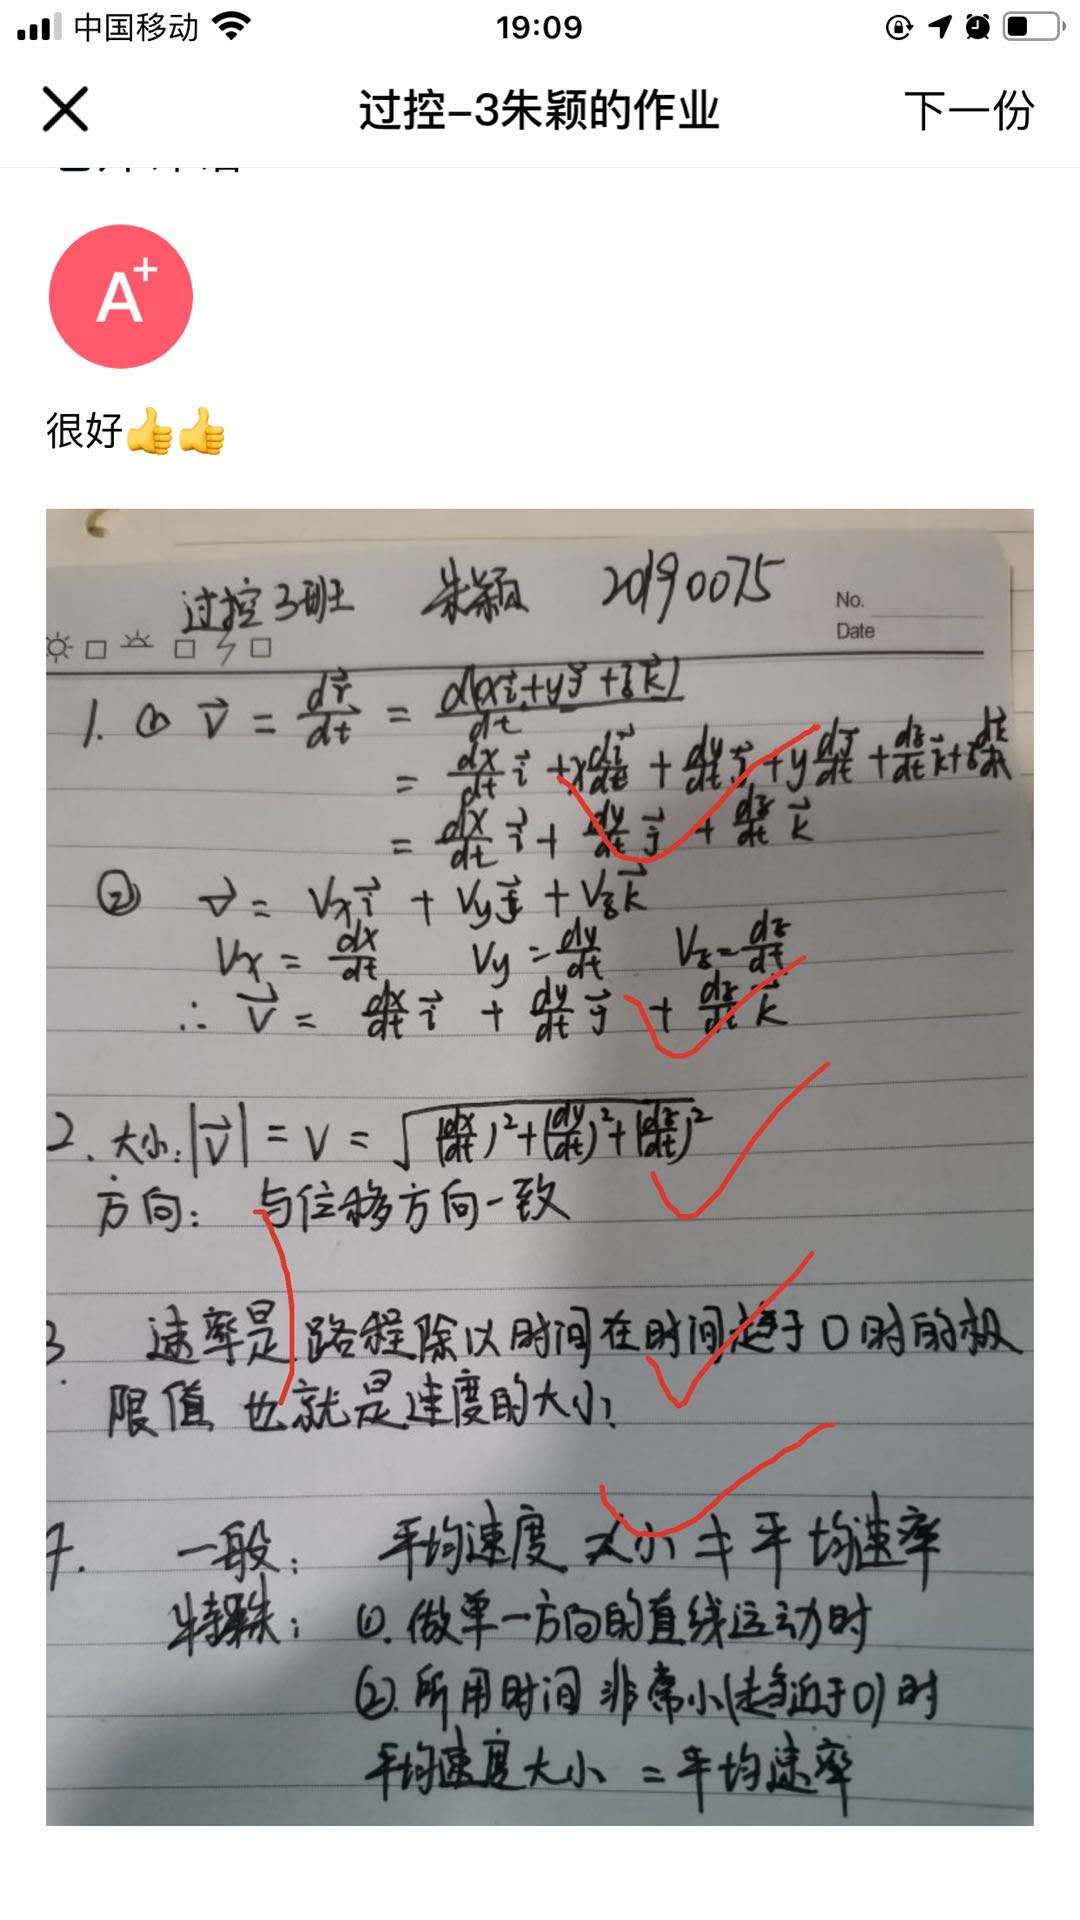 中国移动 19:09
过控-3朱颖的作业 下一份
A+
很好👍👍
过控3班 朱颖 20190075
No.
Date
1. ① v⃗ = dr⃗/dt = d(xi⃗+yj⃗+zk⃗)/dt
= dx/dt i⃗ + x di⃗/dt + dy/dt j⃗ + y dj⃗/dt + dz/dt k⃗ + z dk⃗/dt
= dx/dt i⃗ + dy/dt j⃗ + dz/dt k⃗
② v⃗ = Vxi⃗ + Vyj⃗ + Vzk⃗
Vx = dx/dt Vy = dy/dt Vz = dz/dt
∴ v⃗ = dx/dt i⃗ + dy/dt j⃗ + dz/dt k⃗
2. 大小: |v⃗| = v = √(dx/dt)²+(dy/dt)²+(dz/dt)²
方向: 与位移方向一致
3 速率是路程除以时间在时间趋于0时的极
限值 也就是速度的大小
一般: 平均速度大小 ≠ 平均速率
特殊: ①. 做单一方向的直线运动时
②. 所用时间非常小(趋近于0)时
平均速度大小 = 平均速率